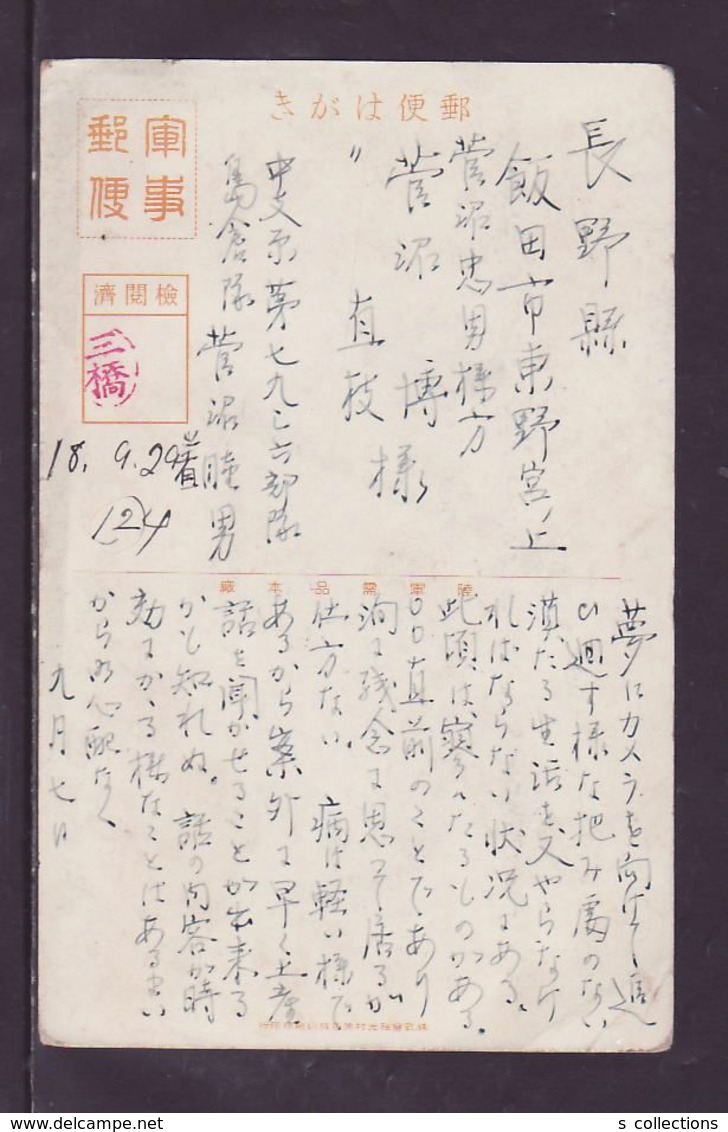 郵便はがき
軍事
郵便
檢閲濟
三橋
長野縣
飯田市東野宮ノ上
菅沼忠男様方
菅沼 博様
〃 直枝
中支派第七九三六部隊
島倉隊 菅沼睦男
18. 9. 29着
124
陸軍需品本廠
夢にカメラを向けて追
ひ廻す様な把み處のない
漠たる生活を又やらなけ
ればならない状況にある。
此頃は、寥々たるものがある。
〇〇直前のことであり
洵に残念に思って居るが
仕方ない。病は軽い様で
あるから案外に早く土産
話を聞かせることが出来る
かも知れぬ。話の内容が時
効にかゝる様なことはあるまい
から御心配なく
九月七日
s collections